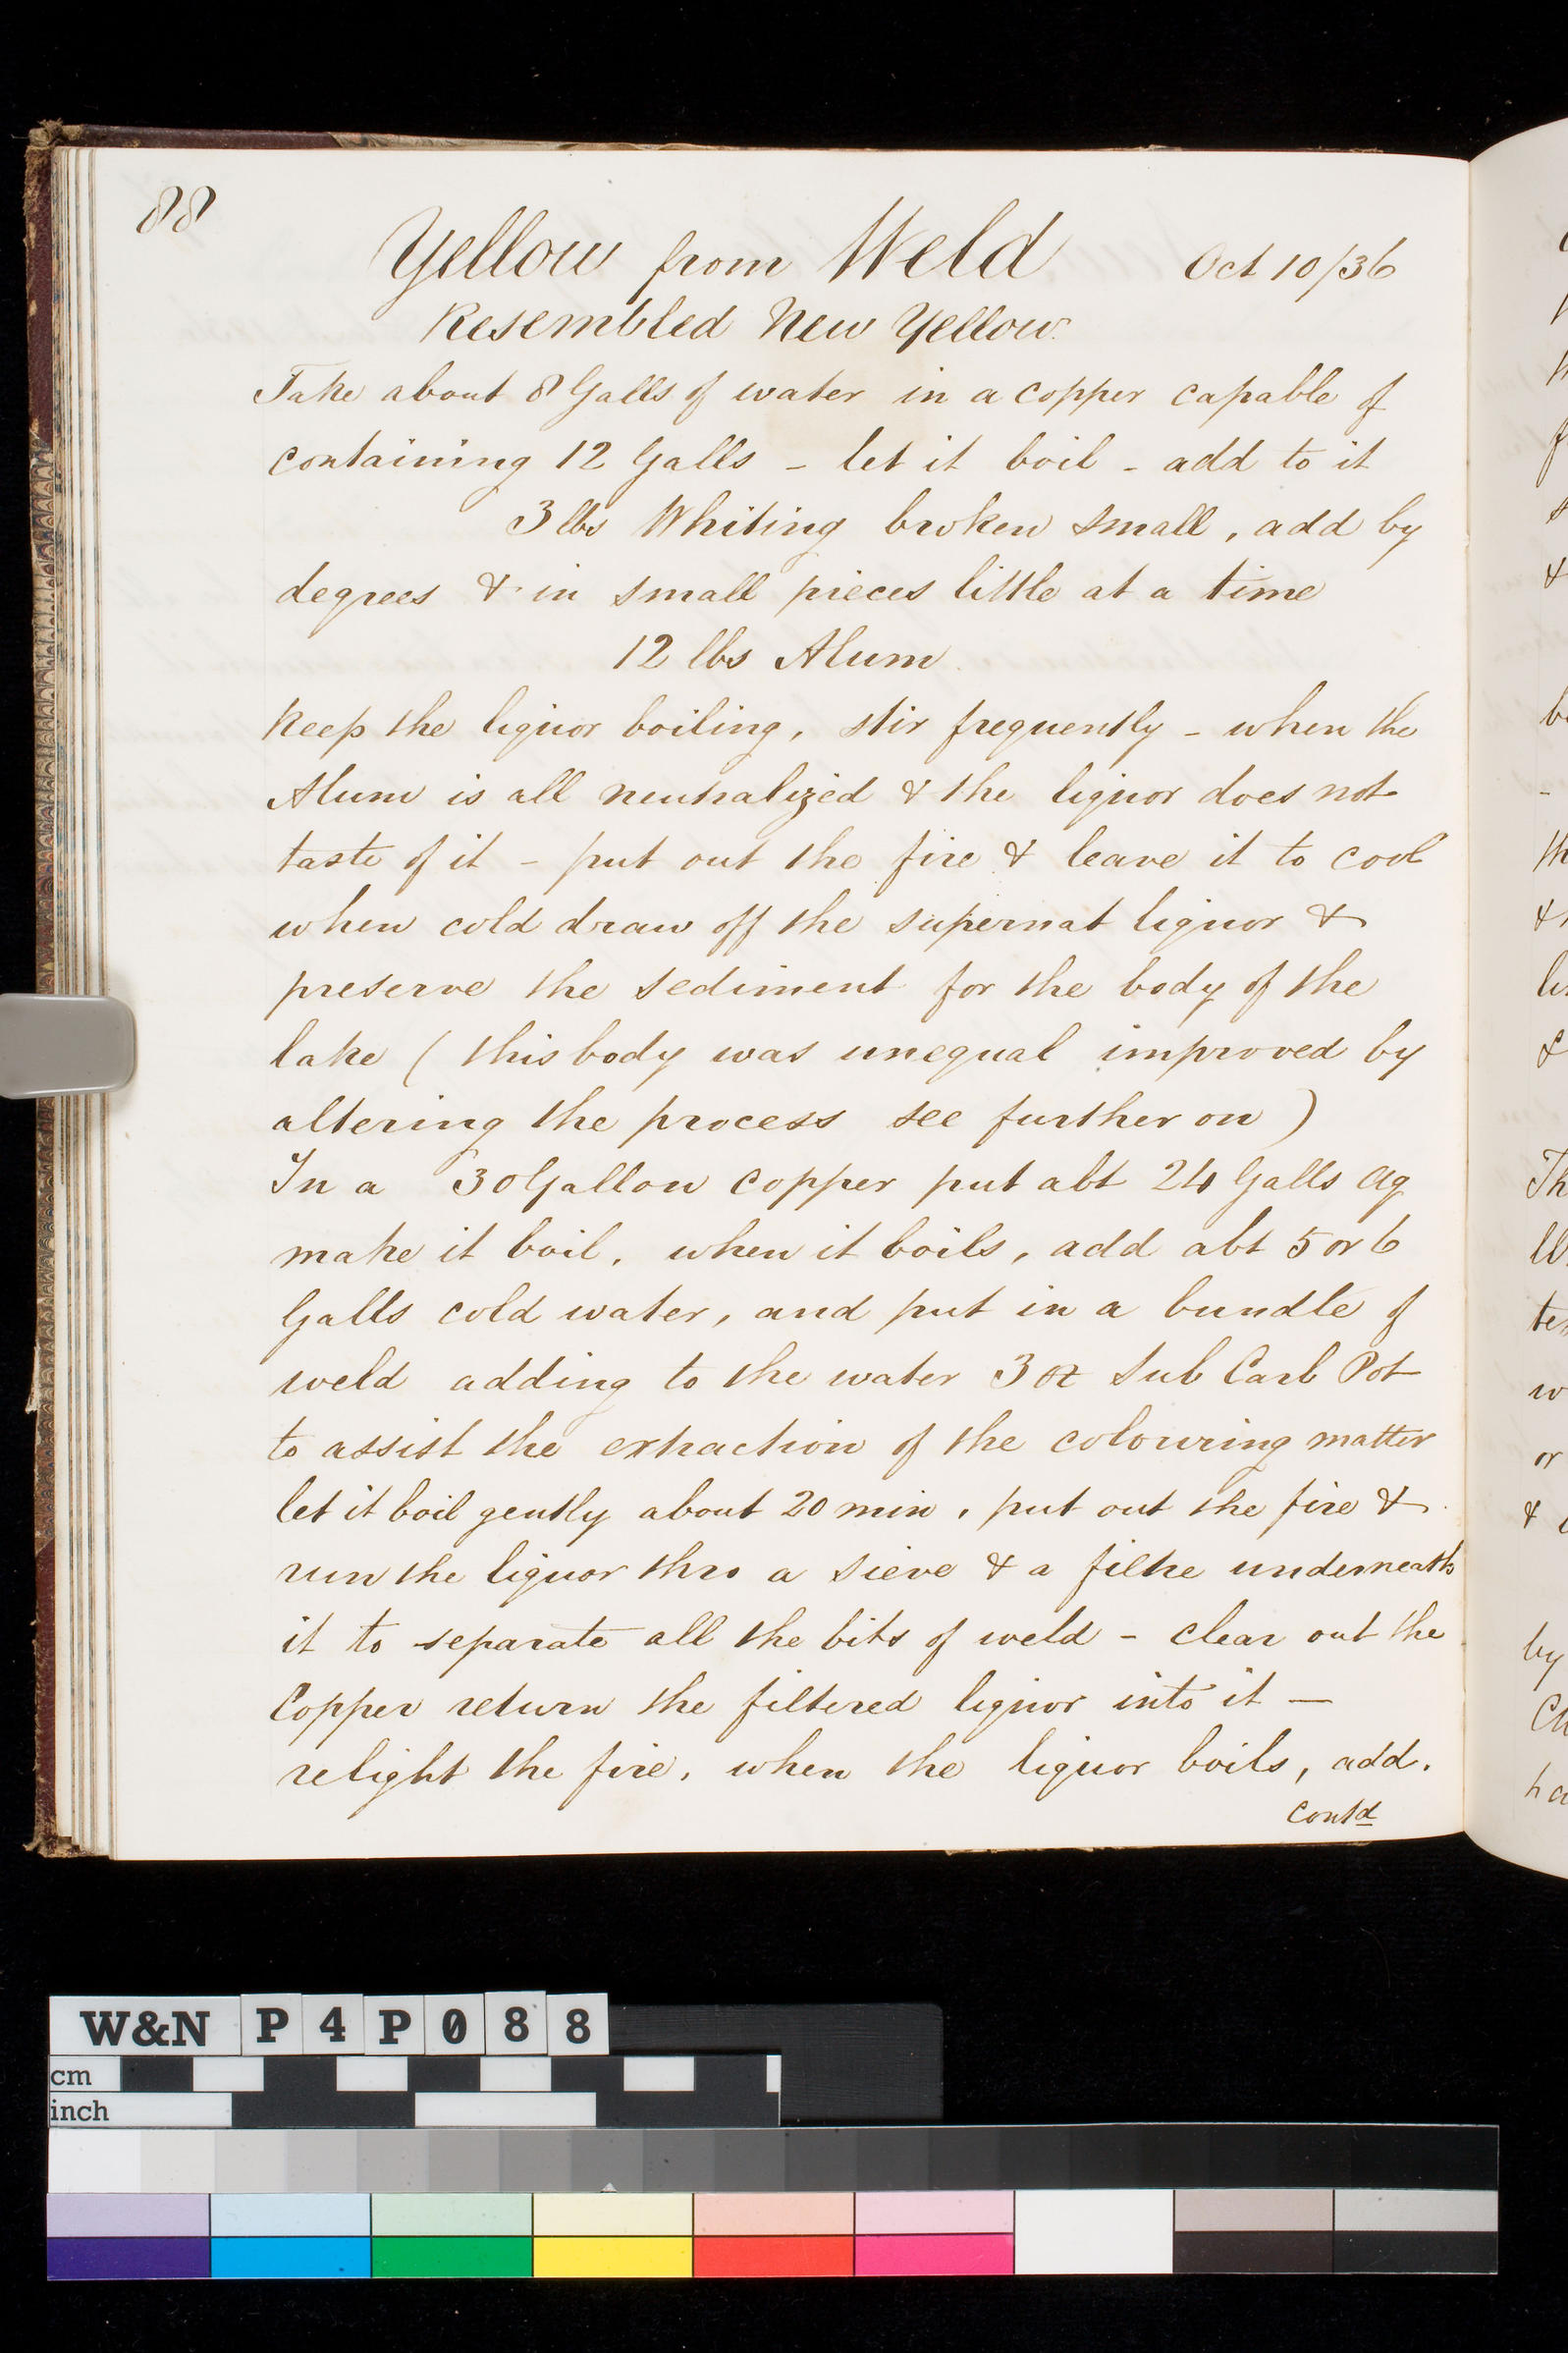 88
Yellow from Weld Oct 10/36
Resembled New Yellow.
Take about 8 Galls of water in a copper capable of
containing 12 Galls - let it boil - add to it
3 lbs Whiting broken small, add by
degrees & in small pieces little at a time
12 lbs Alum
Keep the liquor boiling, stir frequently - when the
Alum is all neutralized & the liquor does not
taste of it - put out the fire & leave it to cool
when cold draw off the supernat liquor &
preserve the sediment for the body of the
lake ( this body was unequal improved by
altering the process see further on )
In a 30 Gallon copper put abt 24 Galls aq
make it boil, when it boils, add abt 5 or 6
Galls cold water, and put in a bundle of
weld adding to the water 3 oz Sub Carb Pot
to assist the extraction of the colouring matter
let it boil gently about 20 min, put out the fire &
run the liquor thro a sieve & a filtre underneath
it to separate all the bits of weld - clear out the
Copper return the filtered liquor into it —
relight the fire, when the liquor boils, add.
contd
W&N P4P088
cm
inch